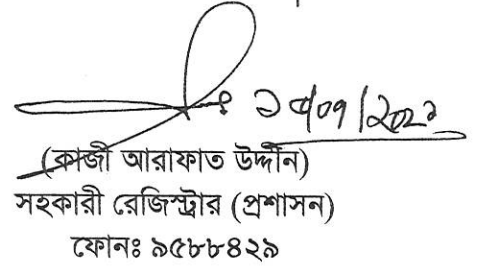 (কাজী আরাফাত উদ্দীন)
সহকারী রেজিস্ট্রার (প্রশাসন)
ফোনঃ ৯৫৮৮৪২৯